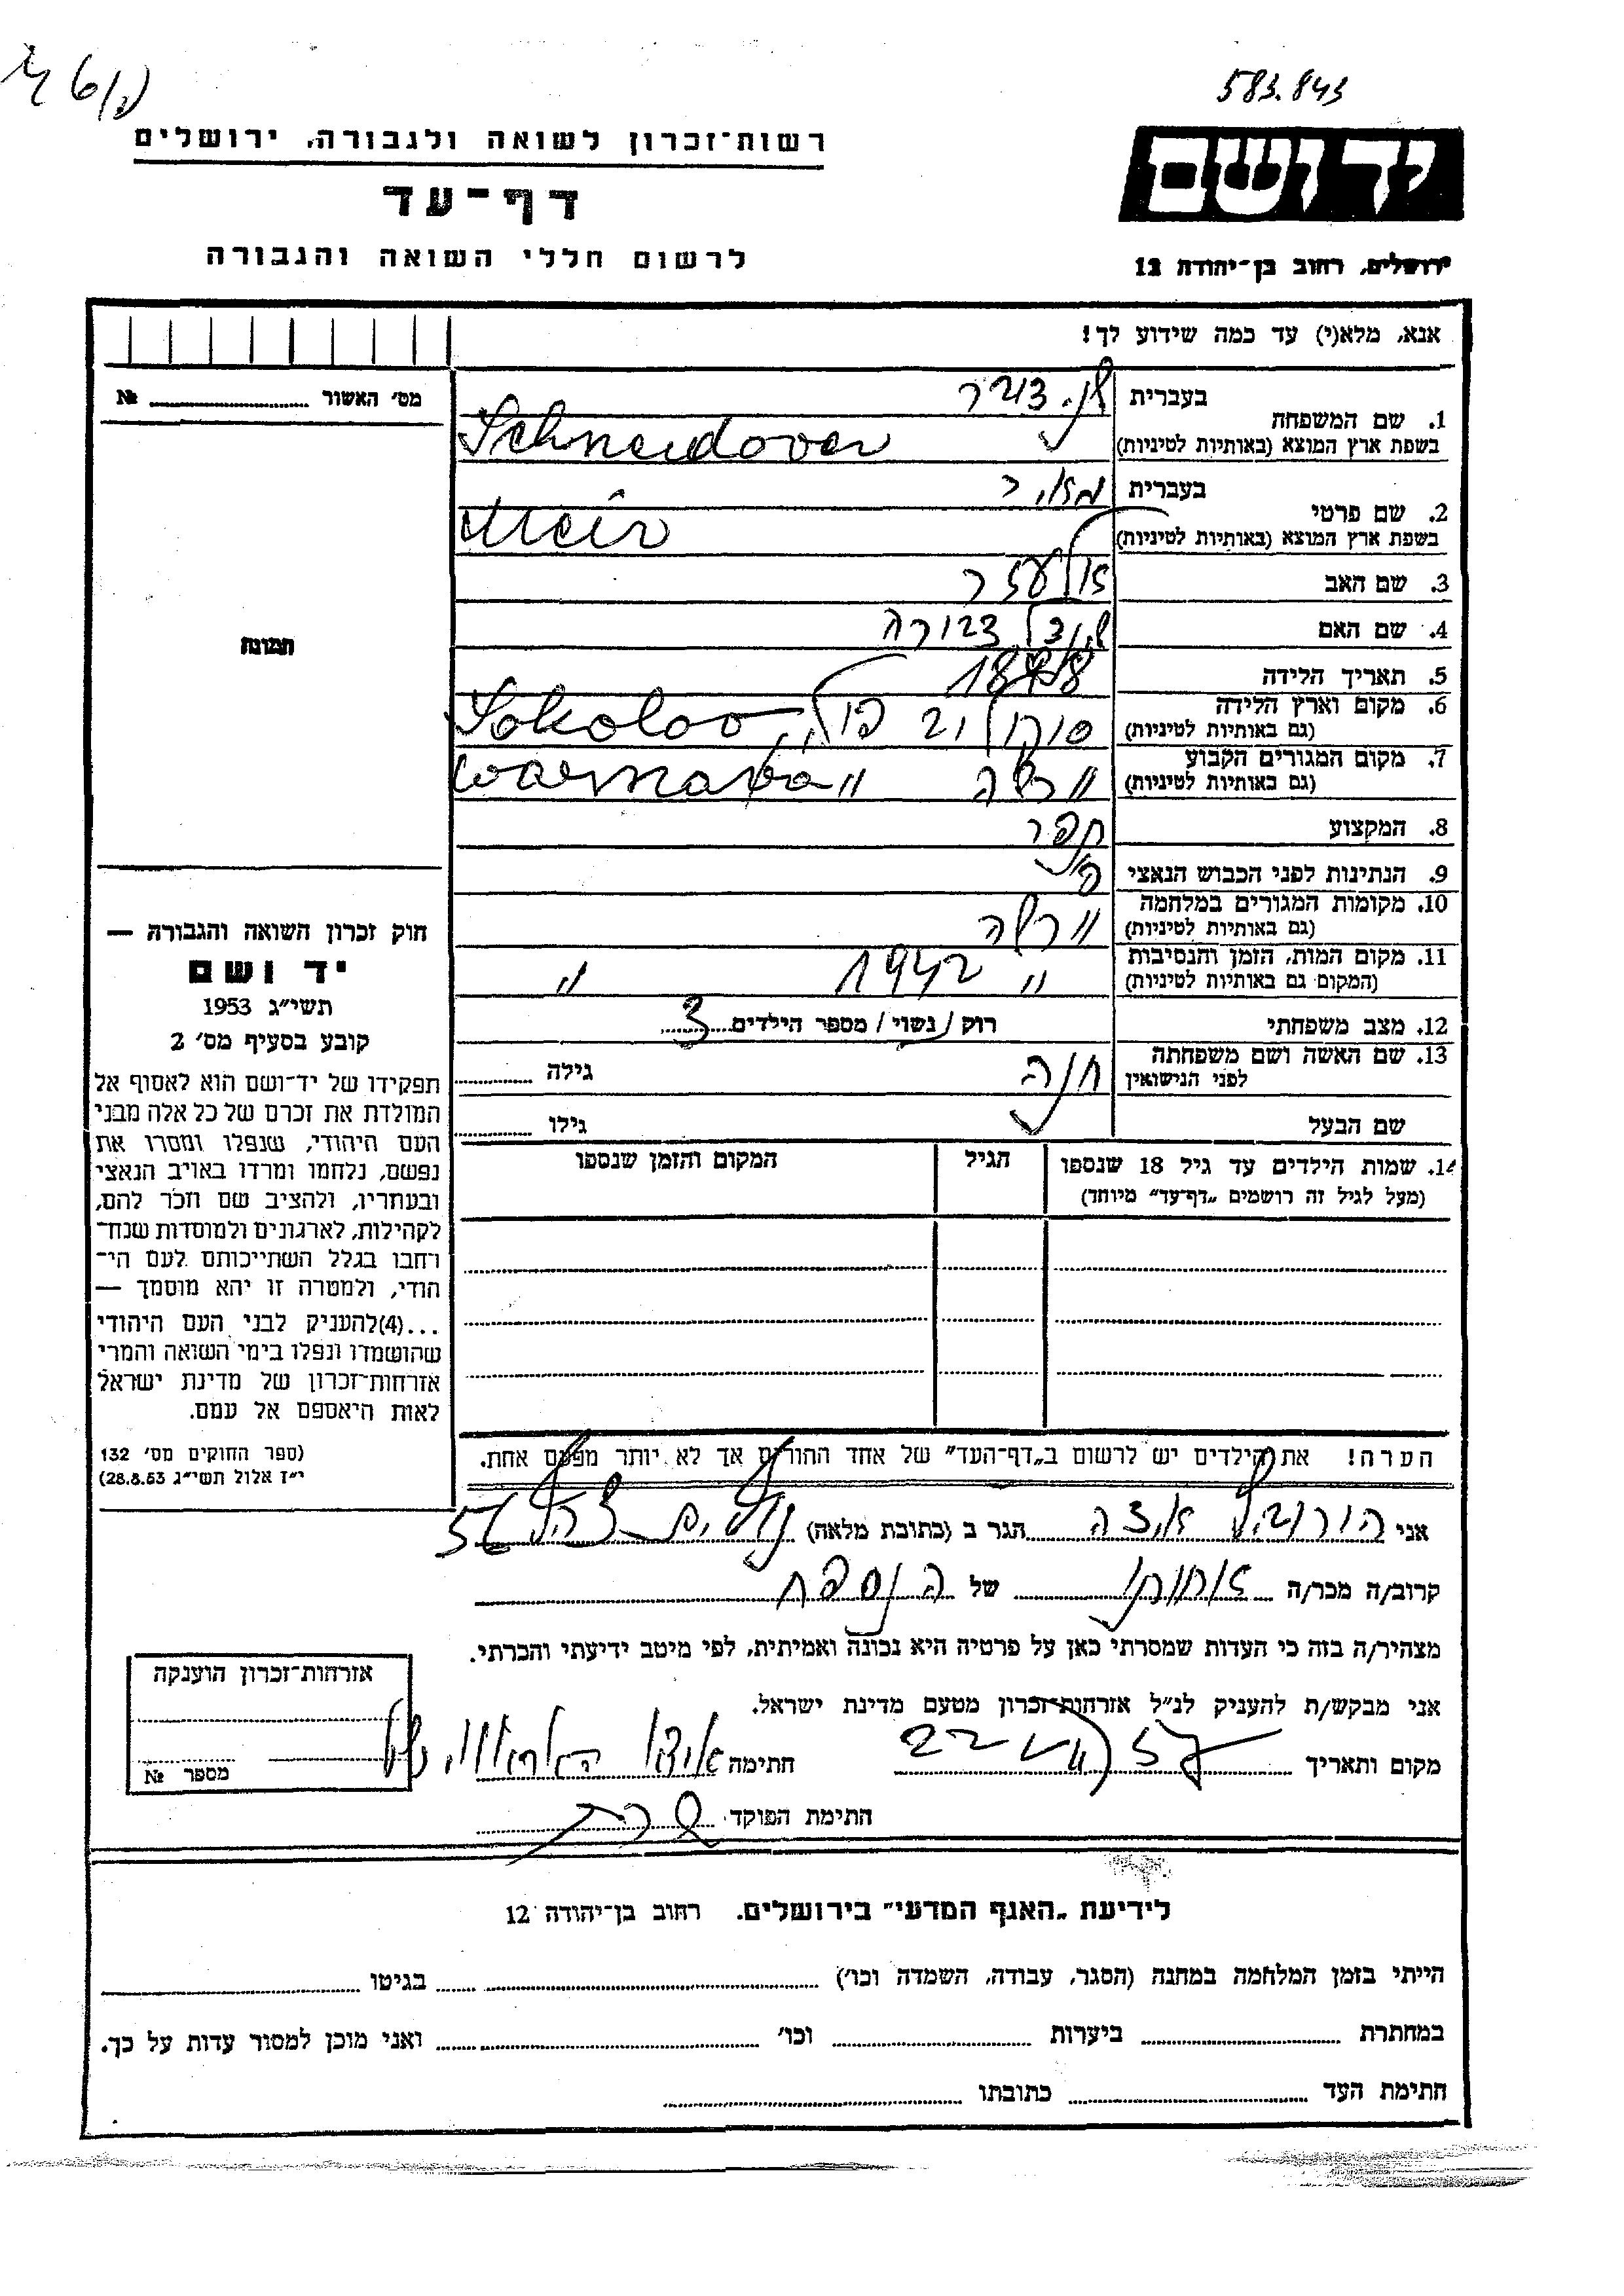 583.843
רשות־זכרון לשואה ולגבורה, ירושלים
דף־עד
לרשום חללי השואה והגבורה
יד ושם
ירושלים, רחוב בן־יהודה 12
אנא, מלא(י) עד כמה שידוע לך!
מס׳ האשור № 
1. שם המשפחה
בעברית
בשפת ארץ המוצא (באותיות לטיניות) Schneidover
2. שם פרטי
בעברית מאיר
בשפת ארץ המוצא (באותיות לטיניות) Meir
3. שם האב אלעזר
4. שם האם דבורה
5. תאריך הלידה
6. מקום וארץ הלידה
(גם באותיות לטיניות) סוקולוב פול. Sokolov
7. מקום המגורים הקבוע
(גם באותיות לטיניות) ורשה
8. המקצוע
9. הנתינות לפני הכבוש הנאצי פ׳
10. מקומות המגורים במלחמה
(גם באותיות לטיניות) ורשה
11. מקום המות, הזמן והנסיבות
(המקום גם באותיות לטיניות) " 1942 "
12. מצב משפחתי רוק / נשוי / מספר הילדים 3
13. שם האשה ושם משפחתה
לפני הנישואין חנה גילה
שם הבעל גילו
14. שמות הילדים עד גיל 18 שנספו
(מעל לגיל זה רושמים „דף־עד” מיוחד)
הגיל
המקום והזמן שנספו
תמונה
חוק זכרון השואה והגבורה —
יד ושם
תשי״ג 1953
קובע בסעיף מס׳ 2
תפקידו של יד־ושם הוא לאסוף אל
המולדת את זכרם של כל אלה מבני
העם היהודי, שנפלו ומסרו את
נפשם, נלחמו ומרדו באויב הנאצי
ובעוזריו, ולהציב שם וזכר להם,
לקהילות, לארגונים ולמוסדות שנח־
רחבו בגלל השתייכותם לעם הי־
הודי, ולמטרה זו יהא מוסמך —
...(4) להעניק לבני העם היהודי
שהושמדו ונפלו בימי השואה והמרי
אזרחות־זכרון של מדינת ישראל
לאות היאספם אל עמם.
(ספר החוקים מס׳ 132
י״ז אלול תשי״ג 28.8.53)
הערה! את הילדים יש לרשום ב„דף־העד” של אחד ההורים אך לא יותר מפעם אחת.
אני הגר ב (כתובת מלאה)
קרוב/ה מכר/ה של הנספה
מצהיר/ה בזה כי העדות שמסרתי כאן על פרטיה היא נכונה ואמיתית, לפי מיטב ידיעתי והכרתי.
אני מבקש/ת להעניק לנ״ל אזרחות־זכרון מטעם מדינת ישראל.
מקום ותאריך חתימה
חתימת הפוקד
אזרחות־זכרון הוענקה
מספר №
לידיעת „האגף המדעי” בירושלים. רחוב בן־יהודה 12
הייתי בזמן המלחמה במחנה (הסגר, עבודה, השמדה וכו׳) בגיטו
במחתרת ביערות וכו׳ ואני מוכן למסור עדות על כך.
חתימת העד כתובתו